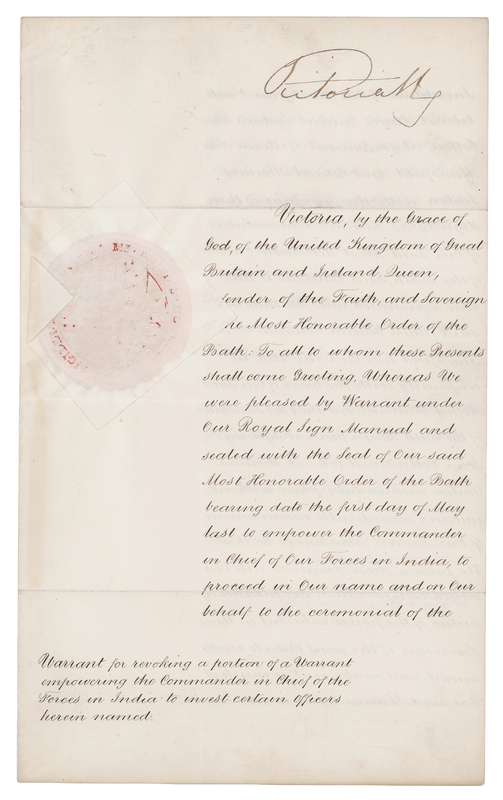 Victoria R
Victoria, by the Grace of
God, of the United Kingdom of Great
Britain and Ireland, Queen,
ender of the Faith, and Sovereign
he Most Honorable Order of the
Bath: To all to whom these Presents
shall come Greeting, Whereas We
were pleased by Warrant under
Our Royal Sign Manual and
sealed with the Seal of Our said
Most Honorable Order of the Bath
bearing date the first day of May
last to empower the Commander
in Chief of Our Forces in India, to
proceed in Our name and on Our
behalf to the ceremonial of the
Warrant for revoking a portion of a Warrant
empowering the Commander in Chief of the
Forces in India to invest certain officers
herein named.